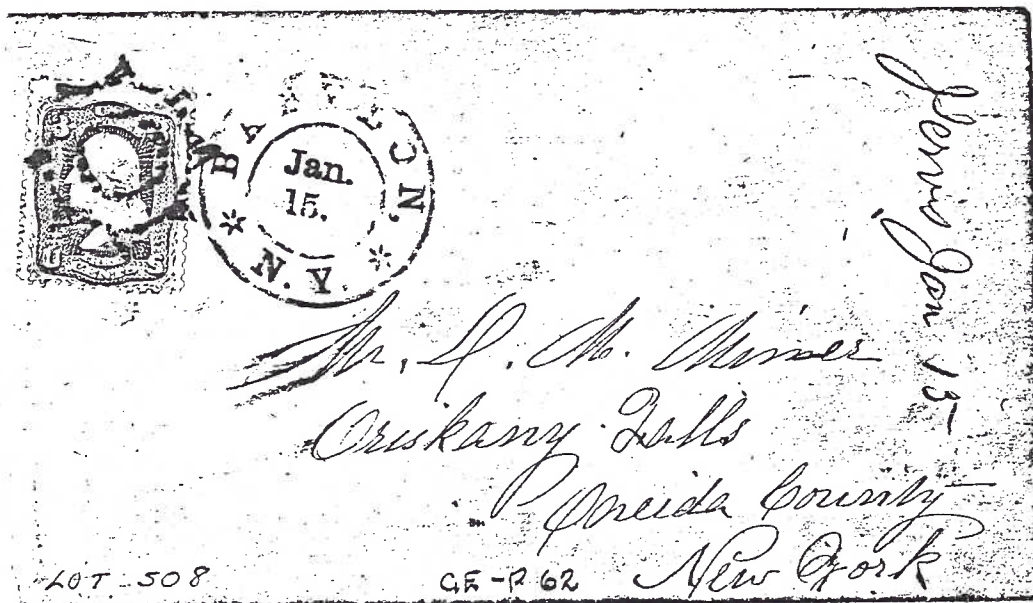 Jan.
15.
N.Y.
Jan 15
Mr. M. Miner
Oriskany Falls
Oneida County
New York
LOT 508
GE-P 62